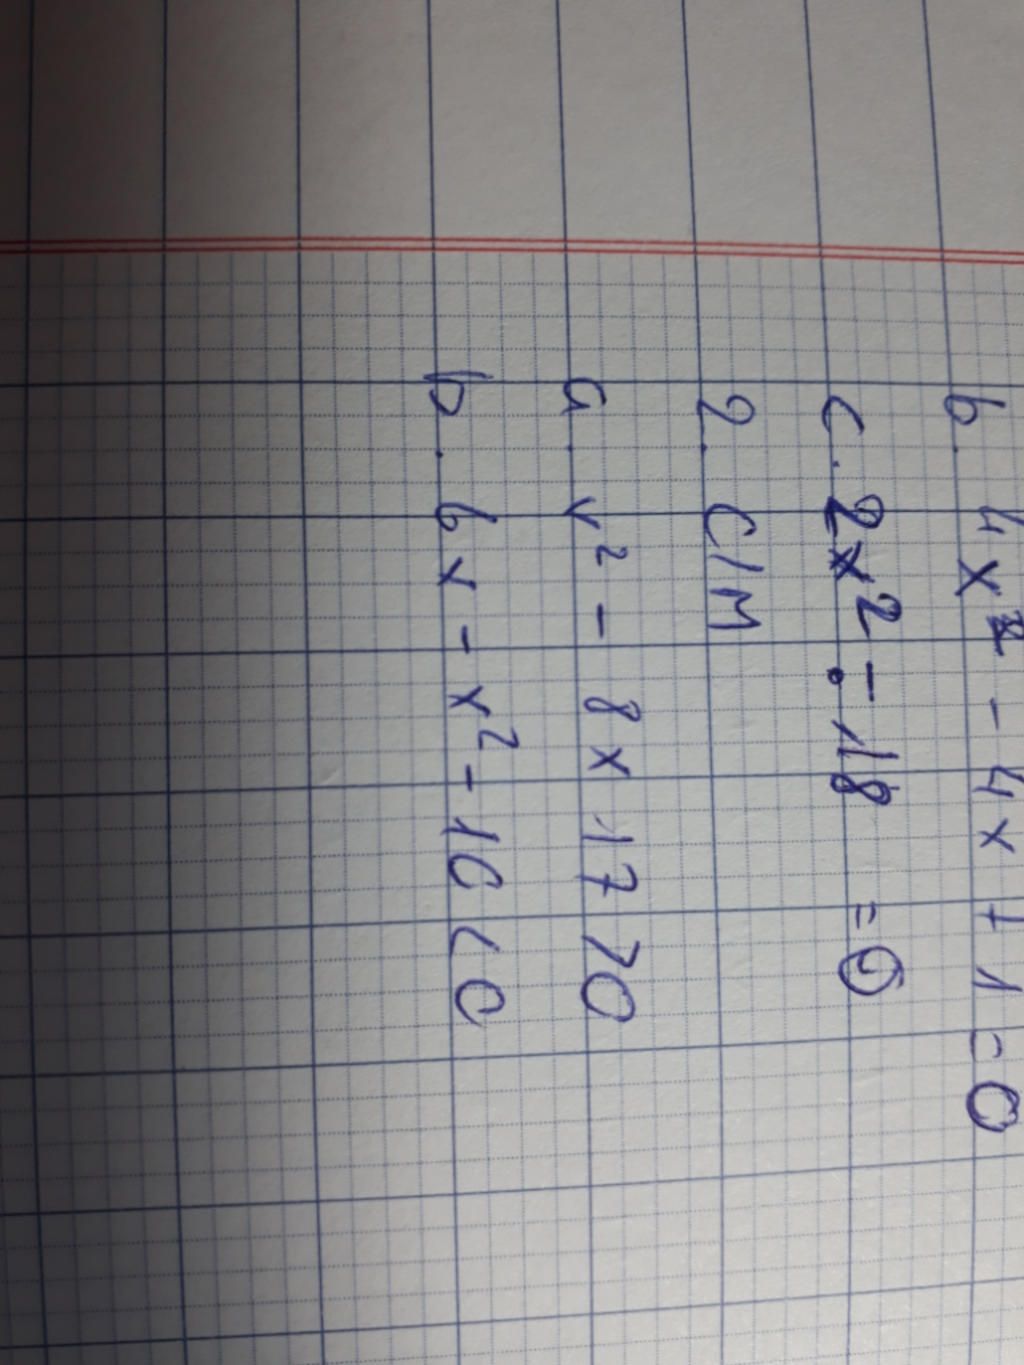 b. 4x² - 4x + 1 = 0
c. 2x² - 18 = 0
2. C/M
a. x² - 8x 17 > 0
b. 6x - x² - 10 < 0